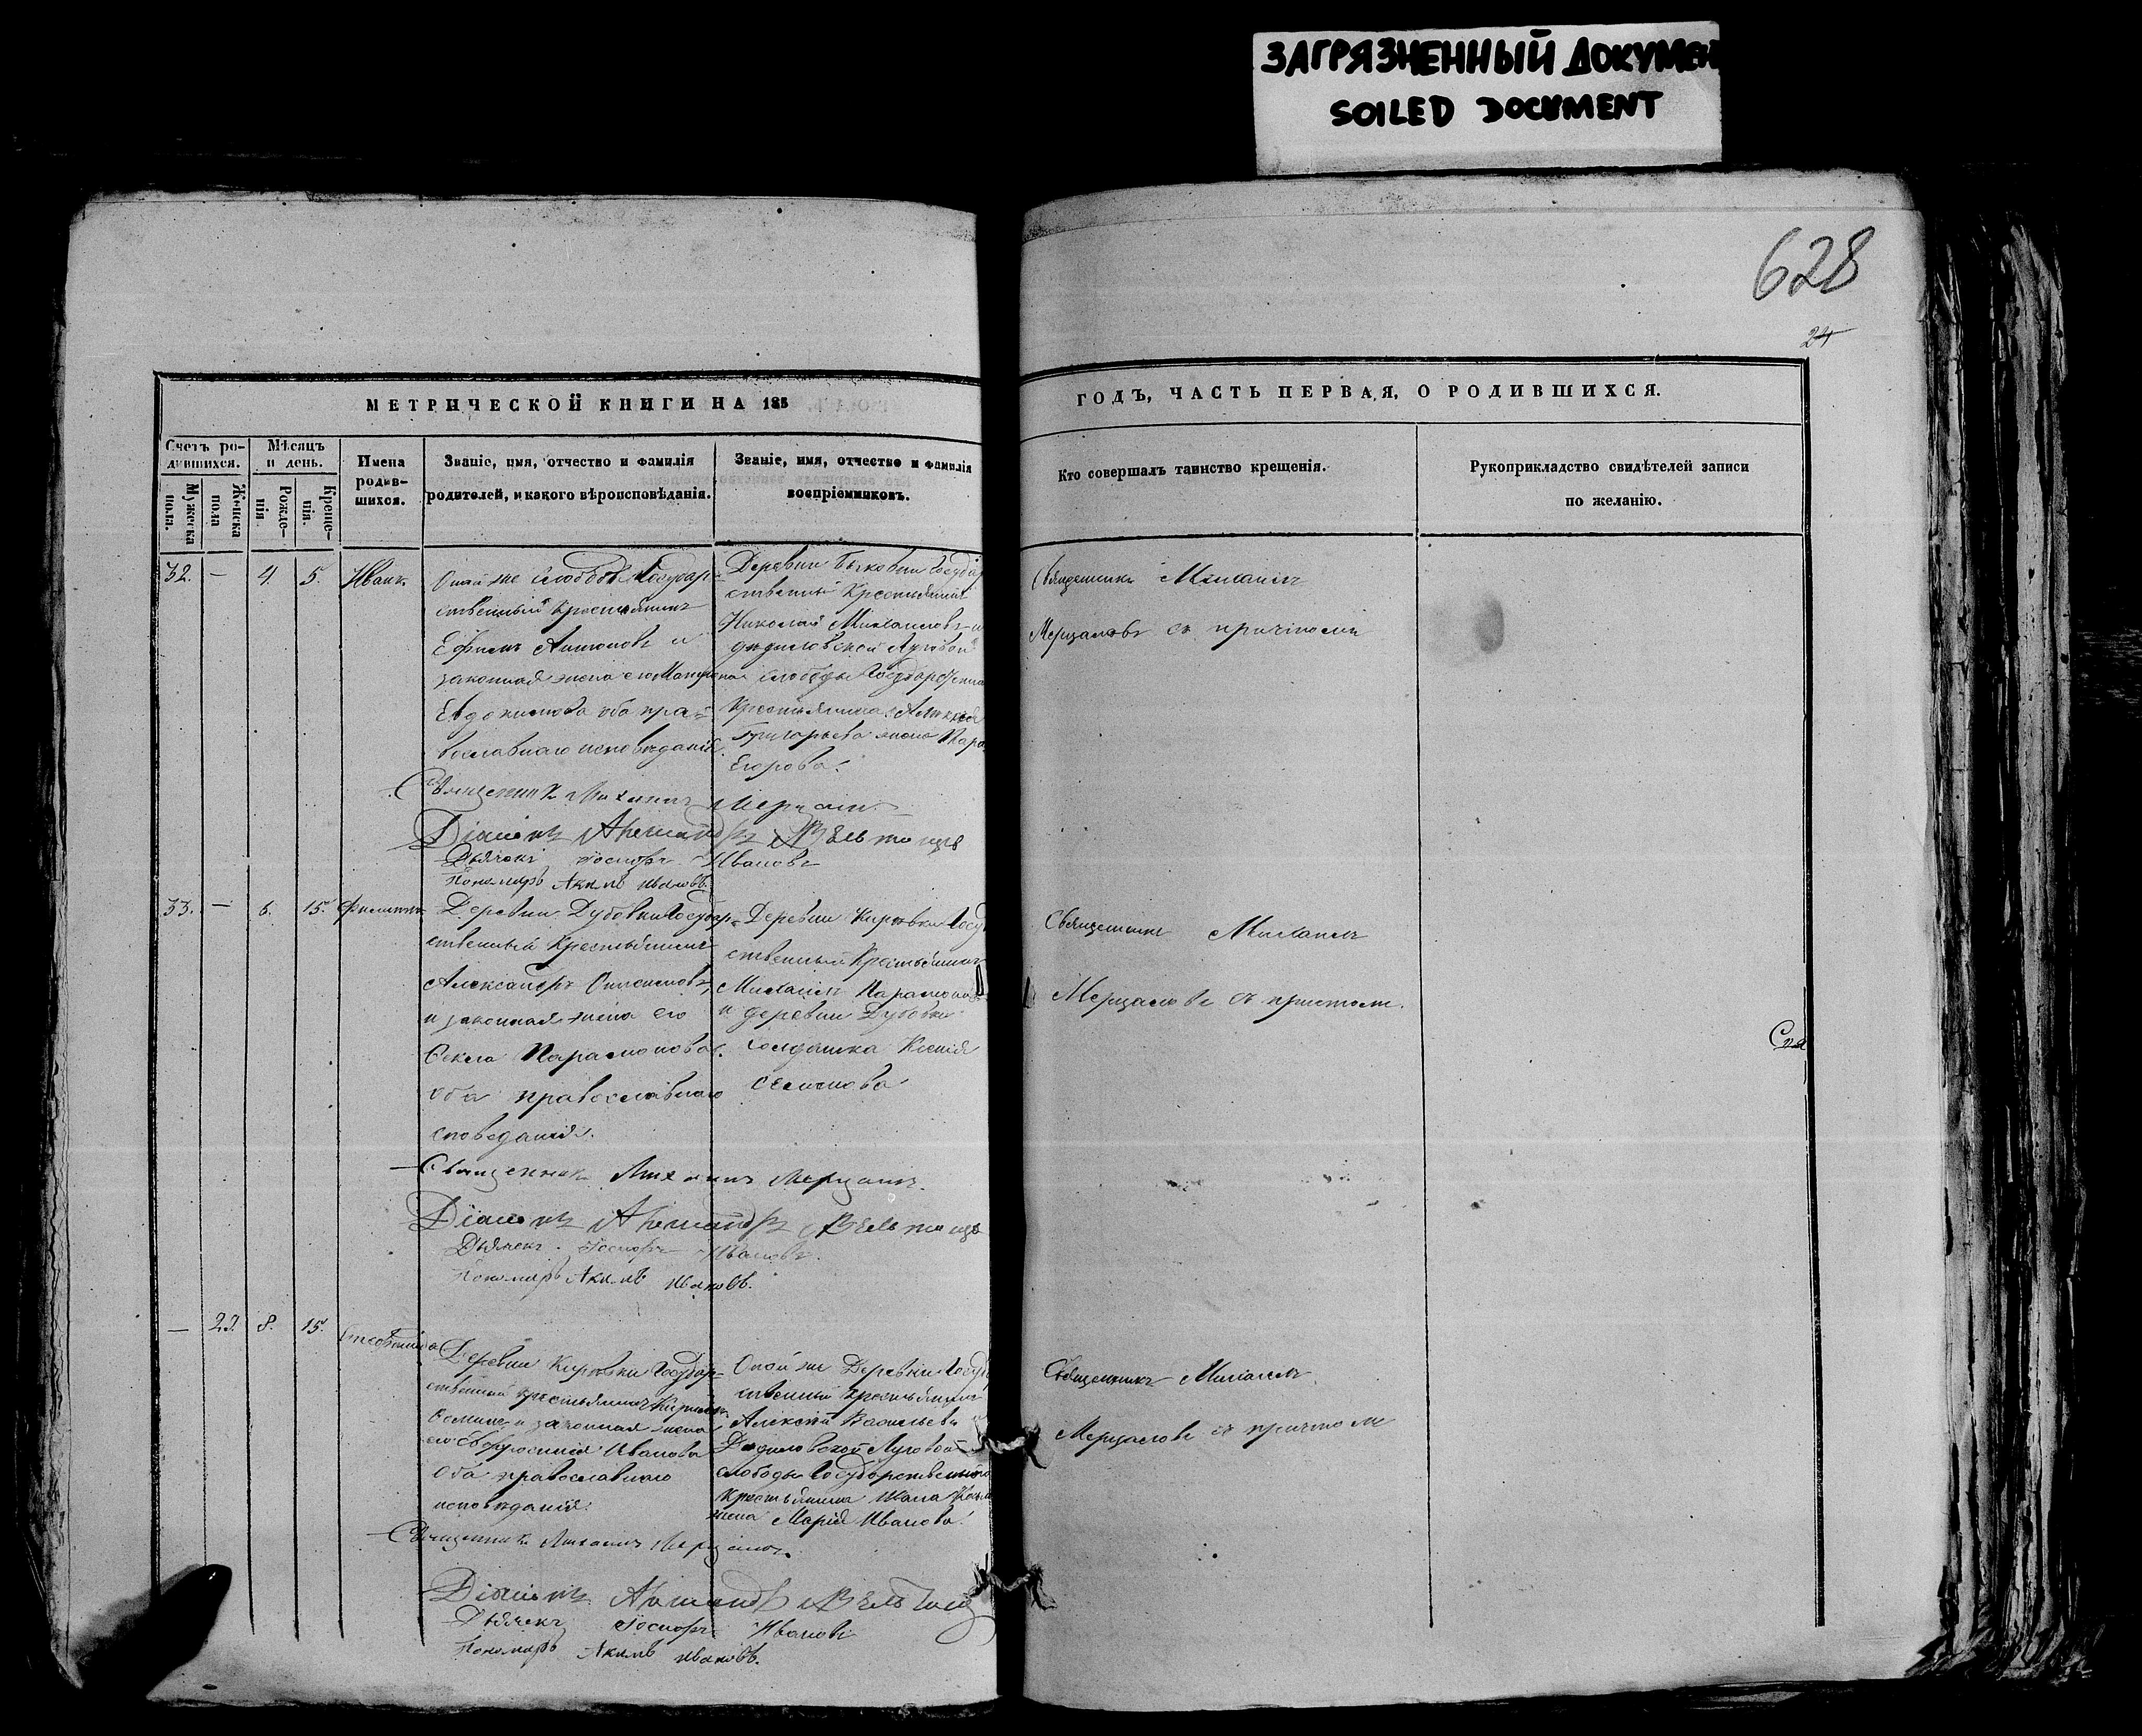 ЗАГРЯЗНЕННЫЙ ДОКУМЕН
SOILED DOCUMENT
628
24
МЕТРИЧЕСКОЙ КНИГИ НА 185
ГОДЪ, ЧАСТЬ ПЕРВАЯ, О РОДИВШИХСЯ.
Счетъ ро-
дившихся.
Мужеска
пола.
Женска
пола
Мѣсяцъ
и день.
Рожде-
нія.
Креще-
нія.
Имена
родив-
шихся.
Званіе, имя, отчество и фамилія
родителей, и какого вѣроисповѣданія.
Званіе, имя, отчество и фамилія
воспріемниковъ.
Кто совершалъ таинство крещенія.
Рукоприкладство свидѣтелей записи
по желанію.
32. — 4. 5. Иванъ
Оной же слободы Государ-
ственный Крестьянинъ
Ефимъ Антоновъ и
законная жена его
Евдокимова оба пра-
вославнаго исповѣданія
Деревни Бычковки Государ
ственный Крестьянинъ
Николай Михаиловъ и
Дѣдиловской Луговой
слободы Государственна
Крестьянина Алексѣя
Григорьева жена
Егорова.
Священникъ Михаилъ
Мерцаловъ съ причтомъ
Священникъ Михаилъ Мерцалов
Діаконъ Александръ
Дьячекъ Іосифъ Ивановъ
Пономарь Акимъ Ивановъ.
33. — 6. 15. Филиппъ
Деревни Дубовки Государ-
ственный Крестьянинъ
Александръ
и законная жена его
Ѳекла Парамонова
оба православнаго
споведанія.
Деревни Кировки Госуд
ственный Крестьянинъ
Михаилъ Парамоновъ
и деревни Дубовки
солдатка Ксенія
Семенова
Священникъ Михаилъ
Мерцаловъ съ причтомъ.
Священникъ Михаилъ Мерцаловъ.
Діаконъ Александръ
Дьячекъ Іосифъ Ивановъ.
Пономарь Акимъ Ивановъ.
— 23. 8. 15. Степанида
Деревни Кировки Государ-
ственный крестьянинъ
Ѳоминъ и законная жена
его Евфросинія Иванова
оба православнаго
исповѣданія.
Оной же Деревни Госуд
ственный Крестьянинъ
Алексѣй Васильевъ
Дѣдиловской Луговой
слободы Государственнаго
Крестьянина Ивана
жена Марія Иванова.
Священникъ Михаилъ
Мерцаловъ съ причтомъ
Священникъ Михаилъ Мерцаловъ.
Діаконъ Александръ
Дьячекъ Іосифъ Ивановъ
Пономарь Акимъ Ивановъ.